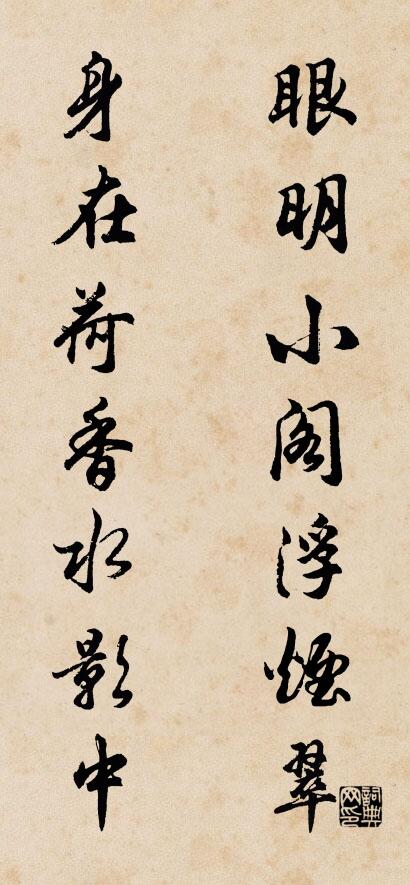 眼明小阁浮煙翠
身在荷香水影中
词典网印